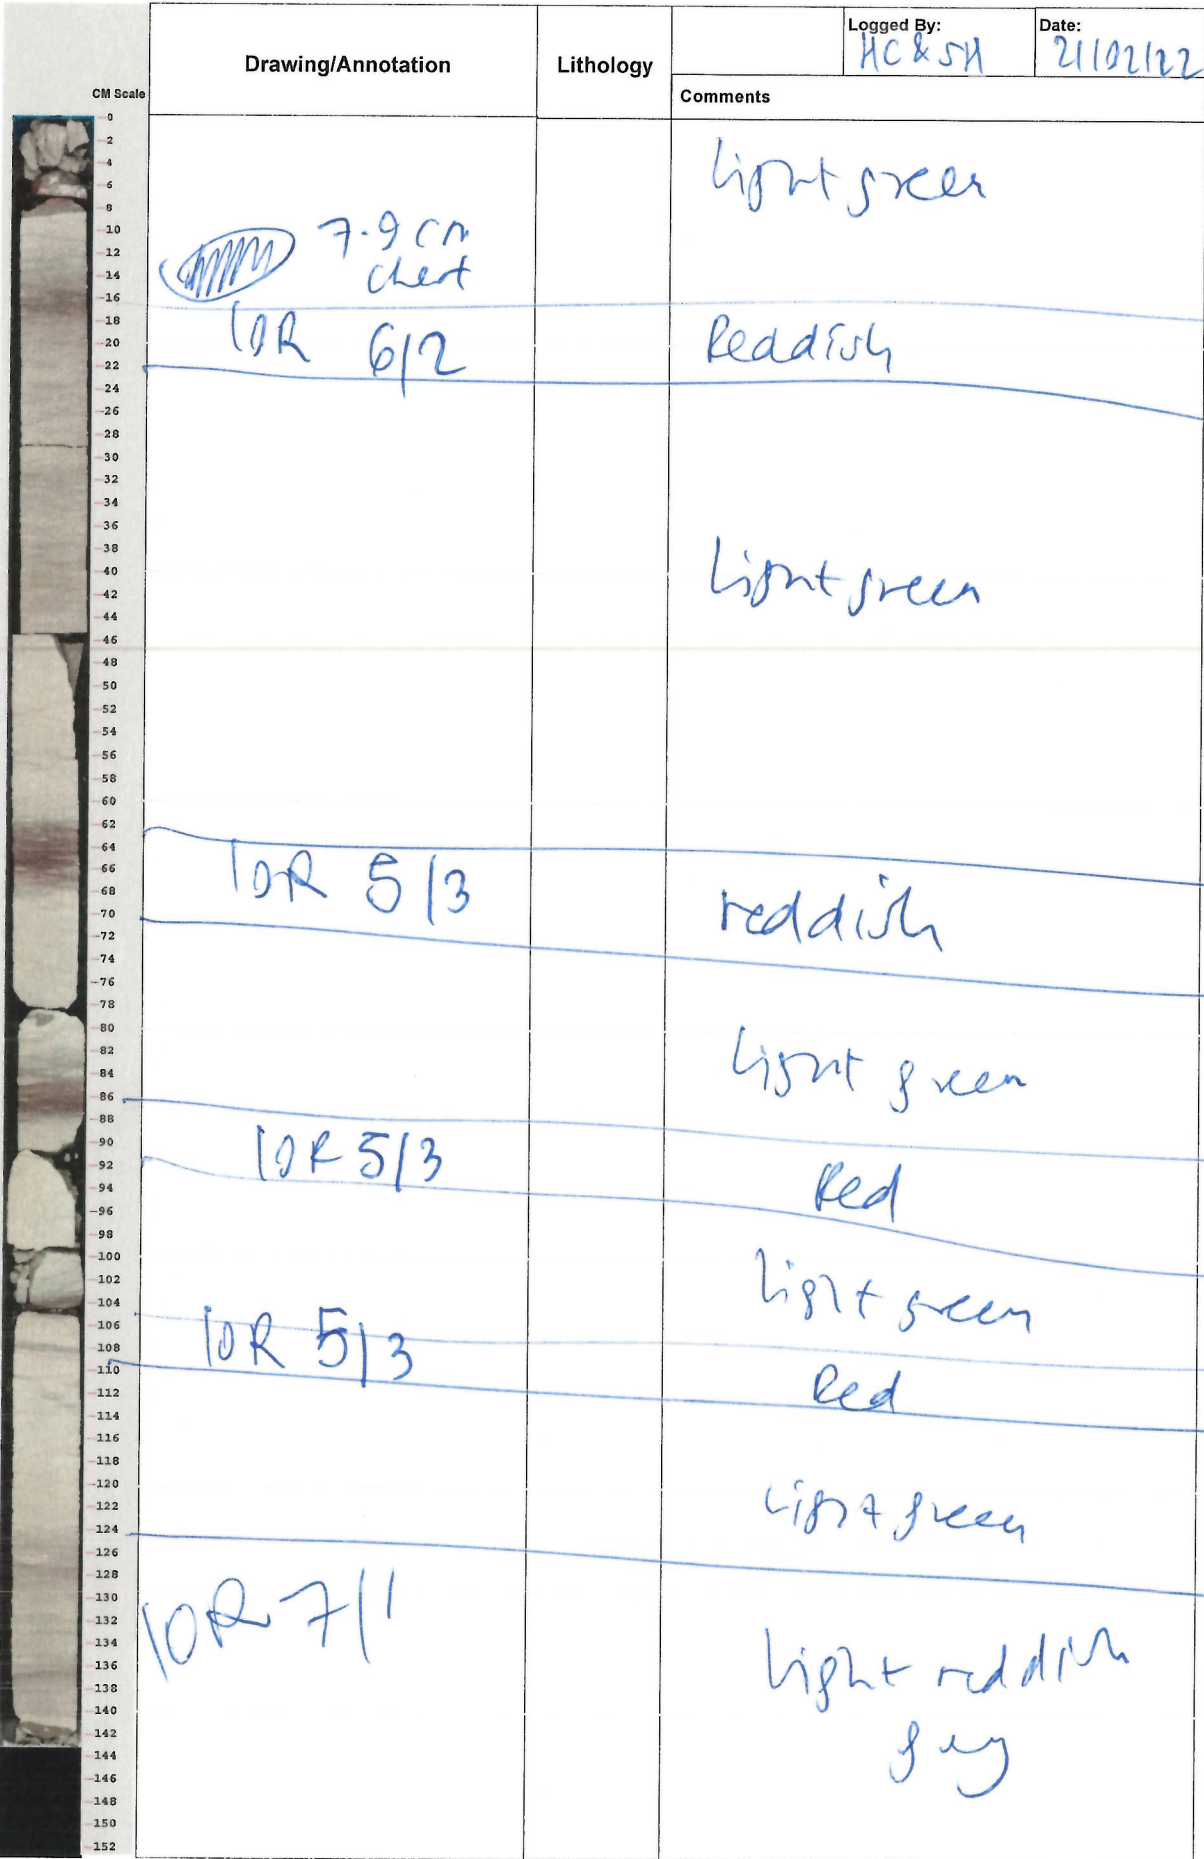 Logged By:
HC & SH
Date:
21/02/22
Drawing/Annotation
Lithology
CM Scale
Comments
0
2
4
6
8
10
12
14
16
18
20
22
24
26
28
30
32
34
36
38
40
42
44
46
48
50
52
54
56
58
60
62
64
66
68
70
72
74
76
78
80
82
84
86
88
90
92
94
96
98
100
102
104
106
108
110
112
114
116
118
120
122
124
126
128
130
132
134
136
138
140
142
144
146
148
150
152
Light green
7-9 cm
chert
10R 6/2
Reddish
Light green
10R 5/3
reddish
Light green
10R 5/3
Red
Light green
10R 5/3
Red
Light green
10R 7/1
Light reddish
grey